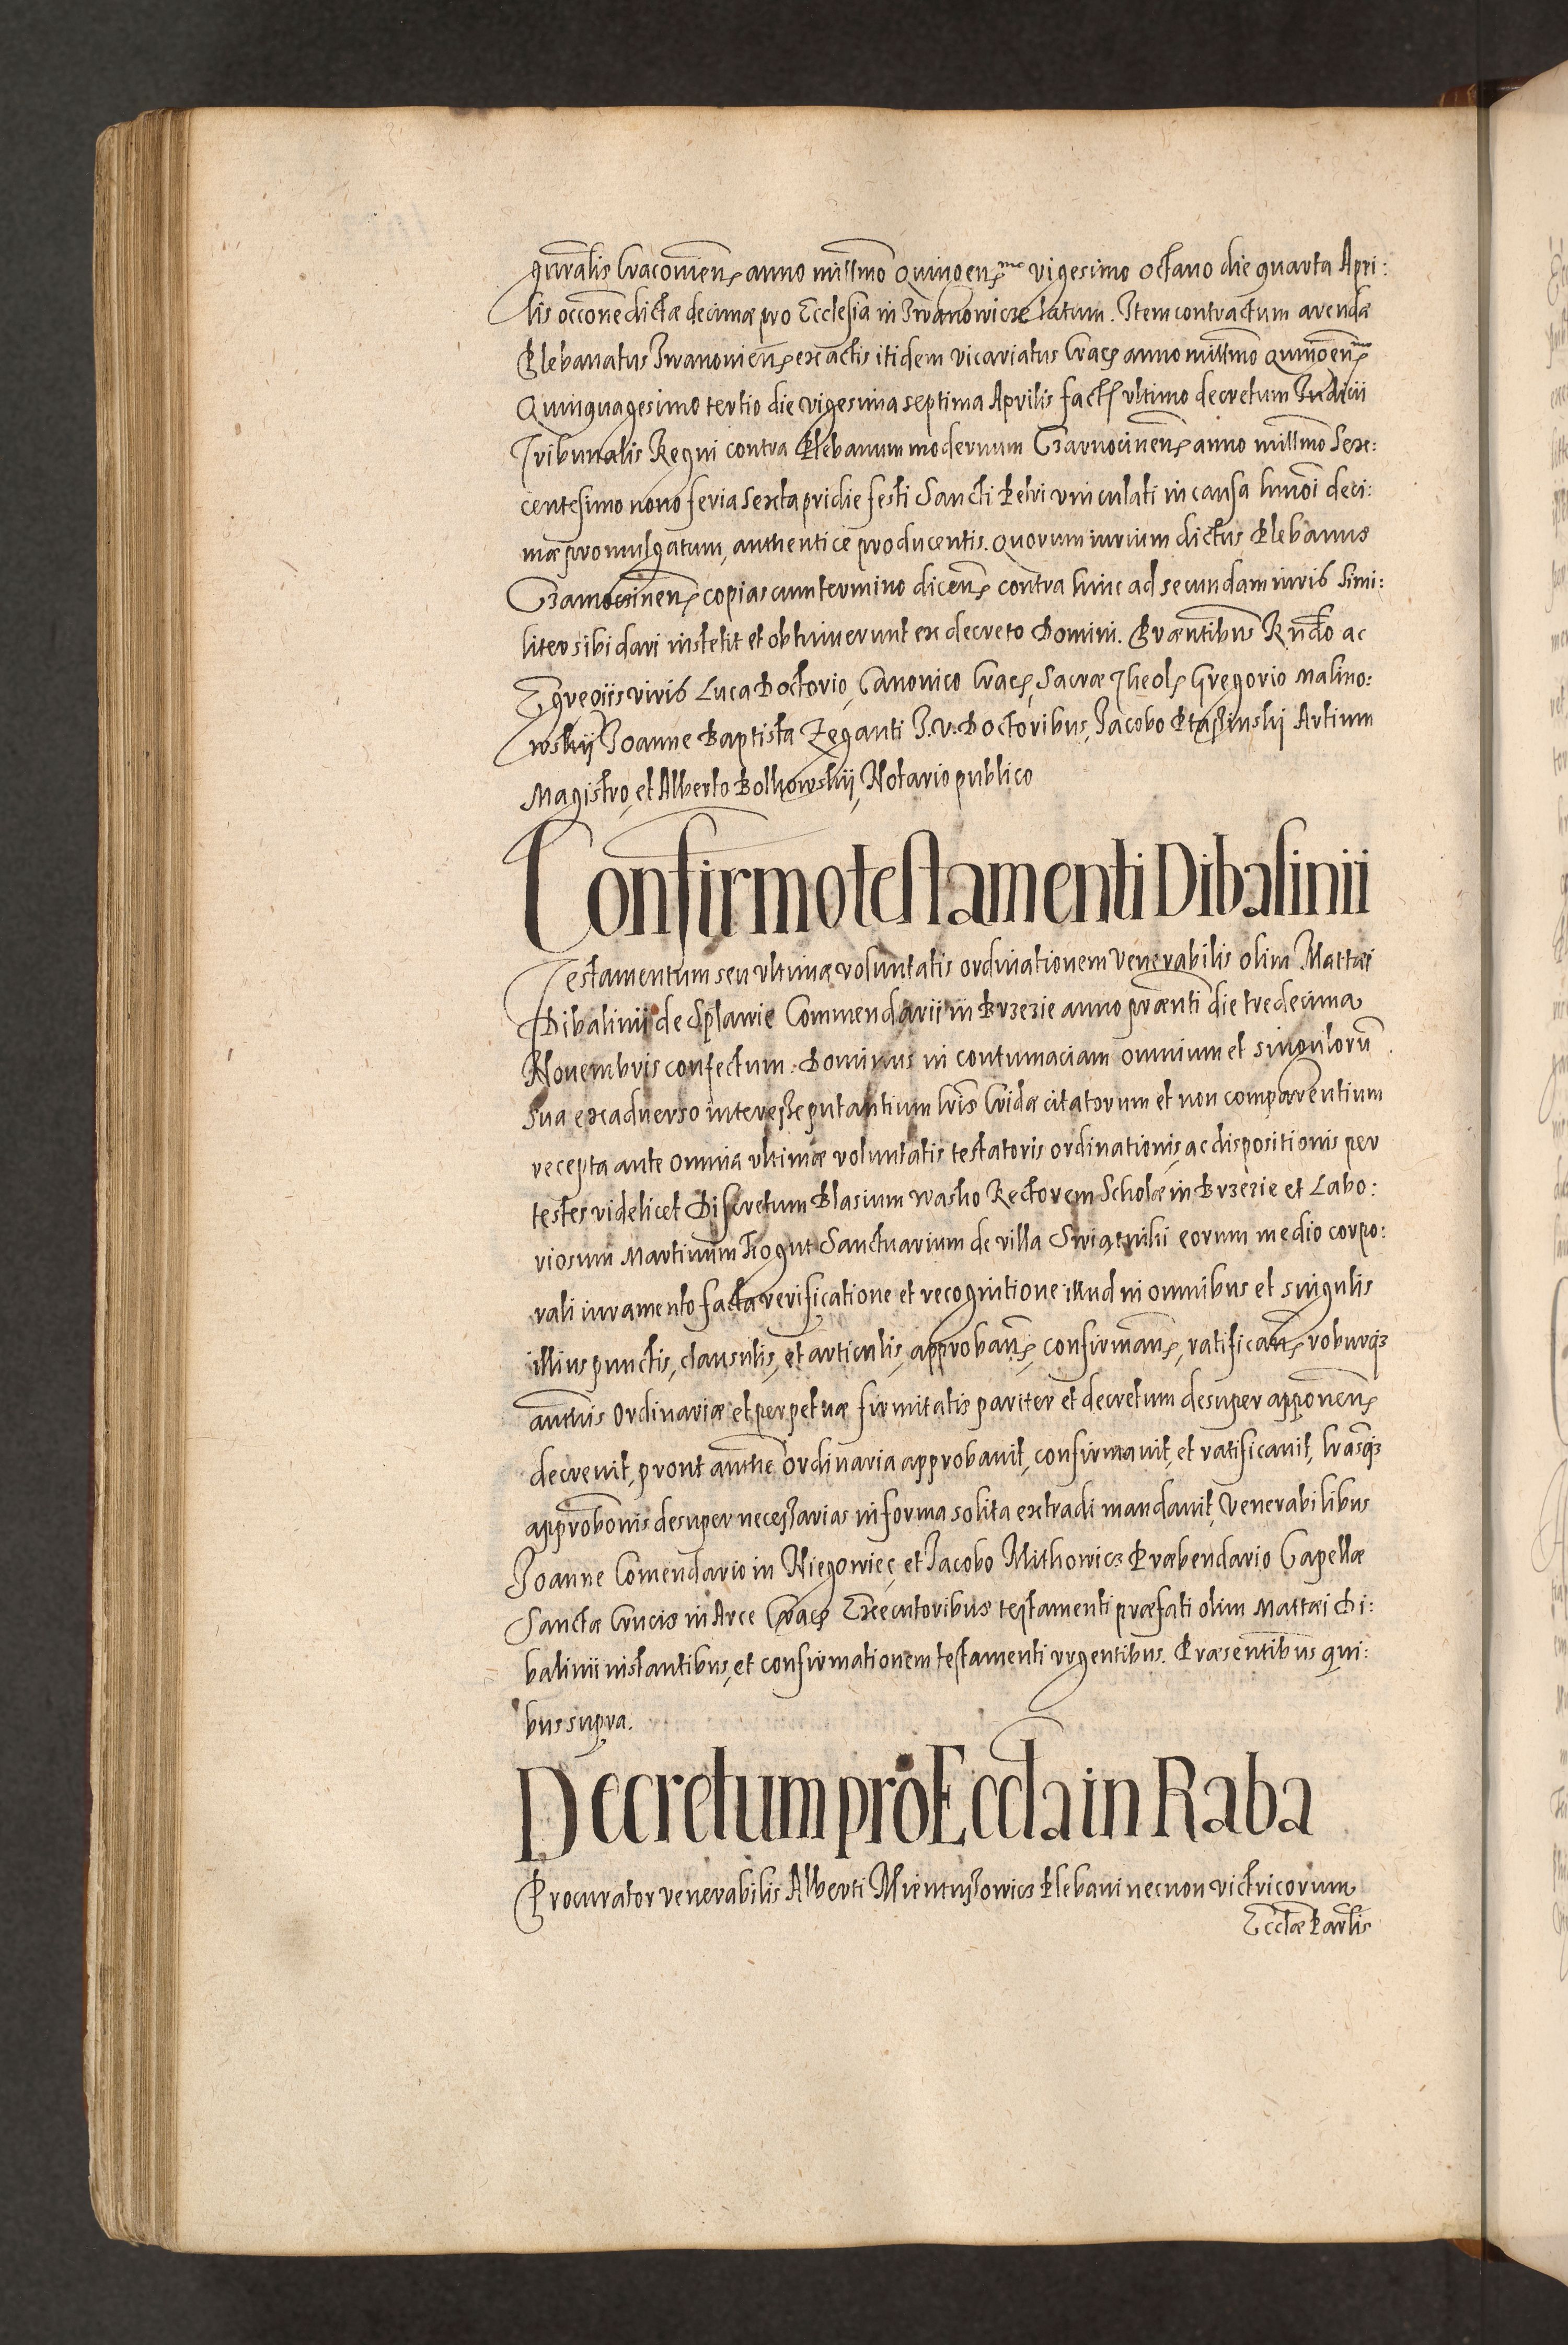 gnralis Cracovien̄ anno millmo Quingen̄mo vigesimo octavo die quarta Apri:
lis occone dictæ decimæ pro Ecclesia in Iwanowicze latum. Item contractum arendæ
Plebanatus Iwanovien̄ ex actis itidem vicariatus Crac̄ anno millmo Quingen̄mo
Quinquagesimo tertio die vigesima septima Aprilis fact̄ ultimo decretum Iudicii
Tribunalis Regni contra Plebanum modernum Czarnocinen̄ anno millmo Sex:
centesimo nono feria Sexta pridie festi Sancti Petri vinculati in causa hmoi deci:
mæ promulgatum, authentice producentis. Quorum iurium dictus Plebanus
Czarnocinen̄ copias cum termino dicen̄ contra hinc ad secundam iuris simi:
liter sibi dari institit et obtinuerunt ex decreto Domini. Præntibus Rndo ac
Egregiis viris Luca Doctorio, Canonico Crac̄, Sacræ Theol̄ Gregorio Malino:
wskij Joanne Baptista Zeganti J. V. Doctoribus, Jacobo Ptassinskj Artium
Magistro, et Alberto Bolkowskij, Notario publico
Confirmo testamenti Dibalinii
Testamentum seu ultimæ voluntatis ordinationem Venerabilis olim Mattæi
Dibalinii de Splawie Commendarii in Brzezie anno prænti die tredecima
Novembris confectum. Dominus in contumaciam omnium et singulorū
sua ex adverso interesse putantium lris Cridæ citatorum et non comparentium
recepta ante omnia ultimæ voluntatis testatoris ordinationis, ac dispositionis per
testes videlicet Discretum Blasium Wasko Rectorem Scholæ in Brzezie et Labo:
riosum Martinum Kogut Sanctuarium de villa Swiątniki eorum medio corpo:
rali iuramento facta verificatione et recognitione illud in omnibus et singulis
illius punctis, clausulis, et articulis, approban̄, confirman̄, ratifican̄, roburq3
auttis Ordinariæ et perpetuæ firmitatis pariter et decretum desuper apponen̄
decrevit, prout autthe ordinaria approbavit, confirmavit, et ratificavit, lrasq3
approbonis desuper necessarias in forma solita extradi mandavit, Venerabilibus
Joanne Comendario in Niegowiec, et Jacobo Mitkowicz Præbendario Capellæ
Sanctæ Crucis in Arce Crac̄ Executoribus testamenti præfati olim Mattæi Di:
balinii instantibus, et confirmationem testamenti urgentibus. Præsentibus qui:
bus supra.
Decretum pro Eccla in Raba
Procurator venerabilis Alberti Mientussowicz Plebani necnon victricorum
Ecclæ Parlis